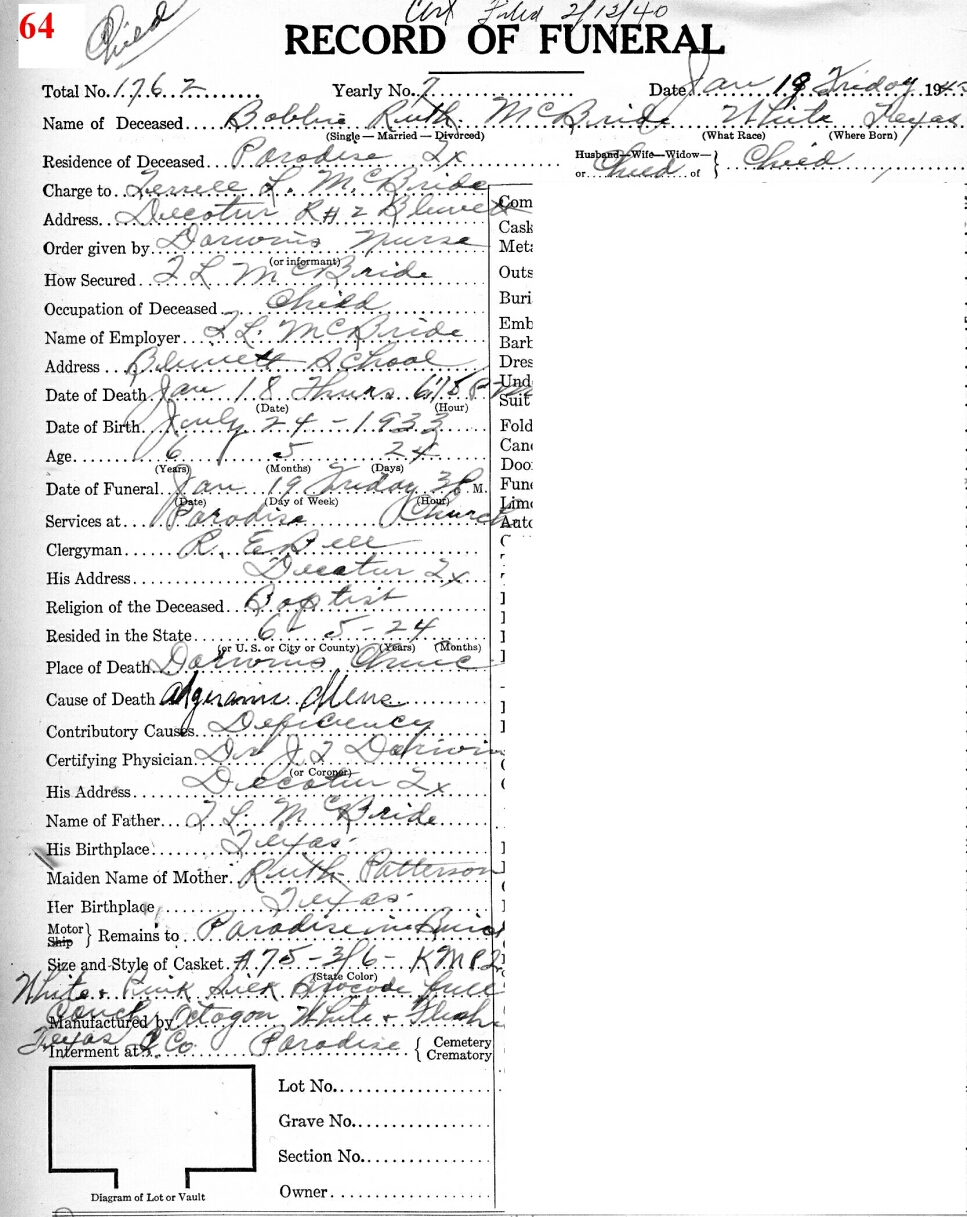 64
Child
Filed 2/13/40
RECORD OF FUNERAL
Total No. 1762 Yearly No. 7 Date Jan 19 Friday 1940
Name of Deceased Bobbie Ruth McBride White Texas
(Single — Married — Divorced) (What Race) (Where Born)
Residence of Deceased Paradise Tx Husband—Wife—Widow— or Child of } Child
Charge to Terrell L. McBride
Address Decatur R#2 Blewett
Order given by Darwins Nurse
(or informant)
How Secured T L McBride
Occupation of Deceased Child
Name of Employer T. L. McBride
Address Blewett School
Date of Death Jan 18 Thurs 6:15 P.M
(Date) (Hour)
Date of Birth July 24 - 1933
Age 6 5 24
(Years) (Months) (Days)
Date of Funeral Jan 19 Friday 3 P. M.
(Date) (Day of Week) (Hour)
Services at Paradise Church
Clergyman R. E. Bell
His Address Decatur Tx
Religion of the Deceased Baptist
Resided in the State 6 - 5 - 24
(or U. S. or City or County) (Years) (Months)
Place of Death Darwins Clinic
Cause of Death
Contributory Causes Deficiency
Certifying Physician Dr J. T Darwin
(or Coroner)
His Address Decatur Tx
Name of Father T. L. McBride
His Birthplace Texas
Maiden Name of Mother Ruth Patterson
Her Birthplace Texas
Motor Ship } Remains to Paradise in Buick
Size and Style of Casket #75 - 3/6 - K M P 2
(State Color)
White & Pink Silk Brocade full
Couch Octagon White & Flesh
Manufactured by
Texas C Co
Interment at Paradise { Cemetery Crematory
Lot No.
Grave No.
Section No.
Owner
Diagram of Lot or Vault
Com
Cask
Meta
Outs
Buri
Emb
Barb
Dres
Und
Suit
Fold
Cand
Doo
Fune
Limo
Auto